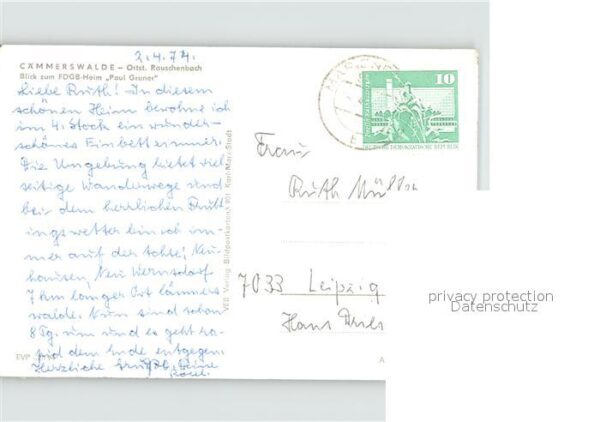 2.4.74.
CÄMMERSWALDE – Ortst. Rauschenbach
Blick zum FDGB-Heim „Paul Gruner"
Liebe Ruth! In diesem
schönen Heim bewohne ich
im 4. Stock ein wunder-
schönes Einbettzimmer.
Die Umgebung bietet viel
seitige Wanderwege und
bei dem herrlichen Früh
lingswetter bin ich im-
mer auf der Achse! Neu-
hausen, Neu Wernsdorf
7 km langer Ort Cämmers
walde. Nun sind schon
8 Tg. um und es geht ra-
pid dem Ende entgegen.
Herzliche Grüße Deine
EVP
VEB Verlag Bildpostkarten 901 Karl-Marx-Stadt
10
DEUTSCHE DEMOKRATISCHE REPUBLIK
Frau
Ruth Müller
7033 Leipzig
Hans
A
privacy protection
Datenschutz